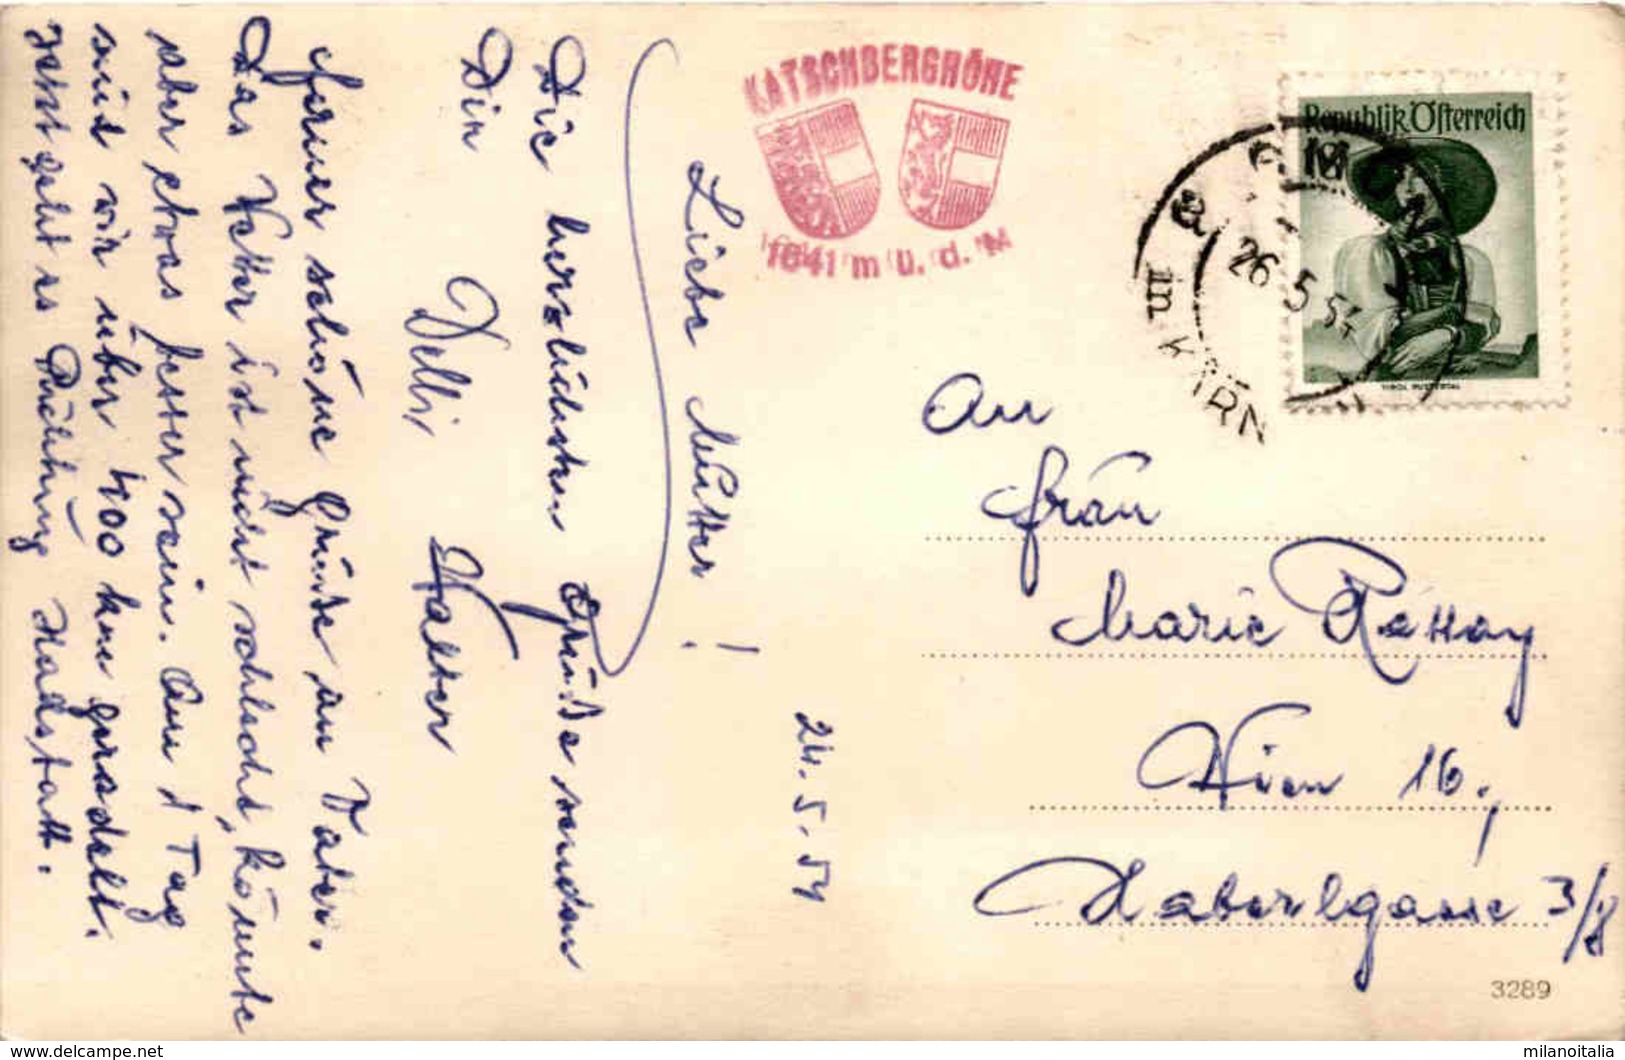 KATSCHBERGHÖHE
1641 m ü. d. M
Republik Österreich
GMÜND
in KÄRN
26.5.54
TIROL PUSTERTAL
24.5.54
Liebe Mutter!
Die herzlichsten Grüße senden
Dir Delli Walter
Ferner schöne Grüße an Vater.
Das Wetter ist nicht schlecht, könnte
aber etwas besser sein. Am 1 Tag
sind wir über 400 km geradelt.
Jetzt geht es Richtung Radstatt.
An
Frau
Marie Rattay
Wien 16.,
Haberlgasse 3/8
3289
www.delcampe.net
milanoitalia